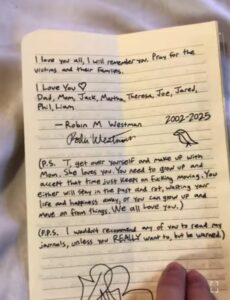 I love you all, I will remember you. Pray for the
victims and their families.
I Love You ♡
Dad, Mom, Jack, Martha, Theresa, Joe, Jared,
Phil, Liam
— Robin M. Westman
2002-2025
(P.S. T, get over yourself and make up with
Mom. She loves you. You need to grow up and
accept that time just keeps on fucking moving. You
either will stay in the past and rot, wasting your
life and happiness away, or you can grow up and
move on from things. We all love you.)
(P.P.S. I wouldn't recommend any of you to read my
journals, unless you REALLY want to, but be warned.)